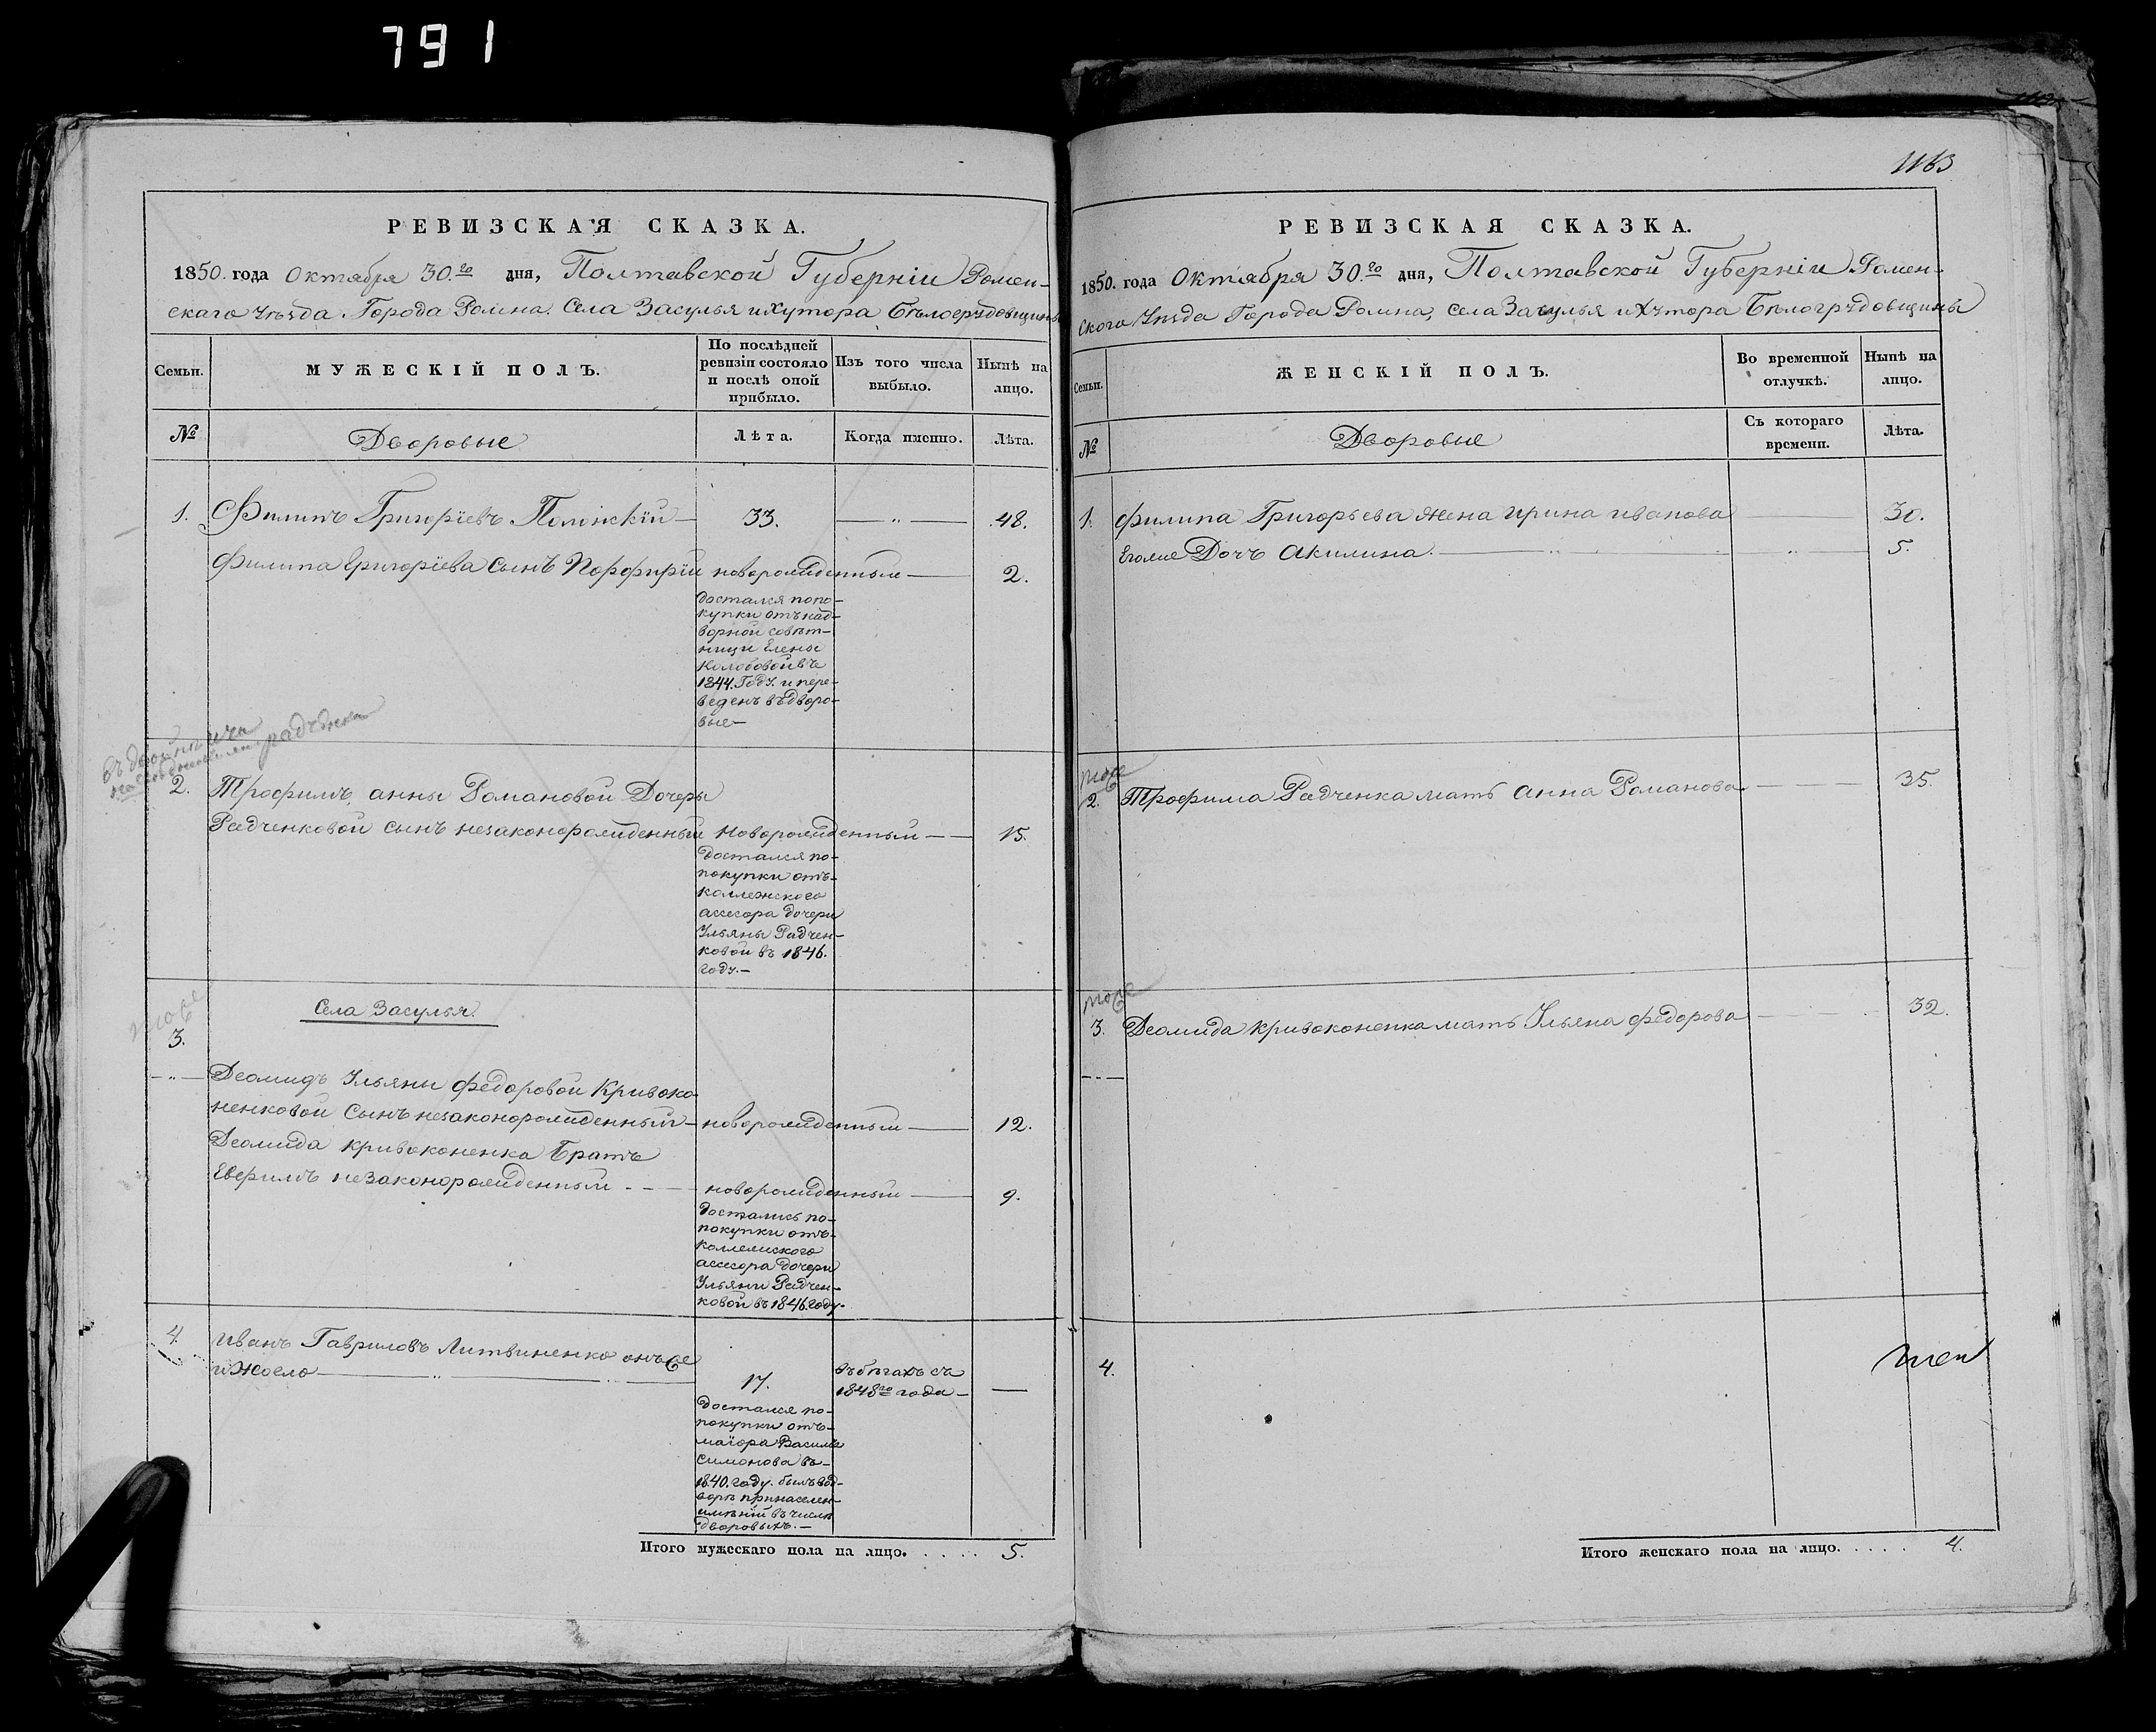 791
РЕВИЗСКАЯ СКАЗКА.
1850. года Октября 30.го дня, Полтавской Губерніи Ромен-
скаго Уѣзда. Города Ромна. Села Засулья и Хутора Бѣлогрудовщины
Семьи.
МУЖЕСКІЙ ПОЛЪ.
По послѣдней
ревизіи состояло
и послѣ оной
прибыло.
Изъ того числа
выбыло.
Нынѣ на
лицо.
№
Дворовые
Лѣта.
Когда именно.
Лѣта.
1. Филипъ Григоріевъ Полонскій — 33. — „ — 48.
Филипа Григоріева сынъ Порфирій новорожденный — 2.
достался по по-
купки отъ над-
ворной совѣт-
ницы Елены
Колобовой въ
1844. Году. и пере-
веденъ въ дворо-
вые —
Радченка
2. Трофимъ, анны Романовой Дочеры
Радченковой сынъ незаконорожденный новорожденный — 15.
достался по-
покупки отъ-
коллежского
ассесора дочери
Ульяны Радчен-
ковой въ 1846.
году. —
тоже
Села Засулья.
3.
— „ — Деомидъ Ульяны Федоровой Кривоко-
ненковой Сынъ незаконорожденный — новорожденный — 12.
Деомида кривоконенка Братъ
Евфимъ незаконорожденный — новорожденный — 9.
достались по-
покупки отъ-
коллежского
ассесора дочери
Ульяны Радчен-
ковой въ 1846. году.
4. Иванъ Гавриловъ Литвиненко онъ же
и Жосло — „ — 17. въ бѣгахъ съ
1848го года — —
достался по-
покупки отъ-
маіора Василія
Симонова въ-
1840. году.
имѣній въ числѣ
дворовыхъ. —
Итого мужескаго пола на лицо. . . . . 5.
1163
РЕВИЗСКАЯ СКАЗКА.
1850. года Октября 30.го дня, Полтавской Губерніи Ромен-
ского Уѣзда Города Ромна, села Засулья и Хутора Бѣлогрудовщины
Семьи.
ЖЕНСКІЙ ПОЛЪ.
Во временной
отлучкѣ.
Нынѣ на
лицо.
№
Дворовые
Съ котораго
времени.
Лѣта.
1. Филипа Григорьева жена Ирина иванова — 30.
Егоже Дочъ Акилина. — „ — 5.
тоже
2. Трофима Радченка мать Анна Романова — 35.
тоже
3. Деомида кривоконенка мать Ульяна федорова — 32.
4.
Итого женскаго пола на лицо. . . . . 4.